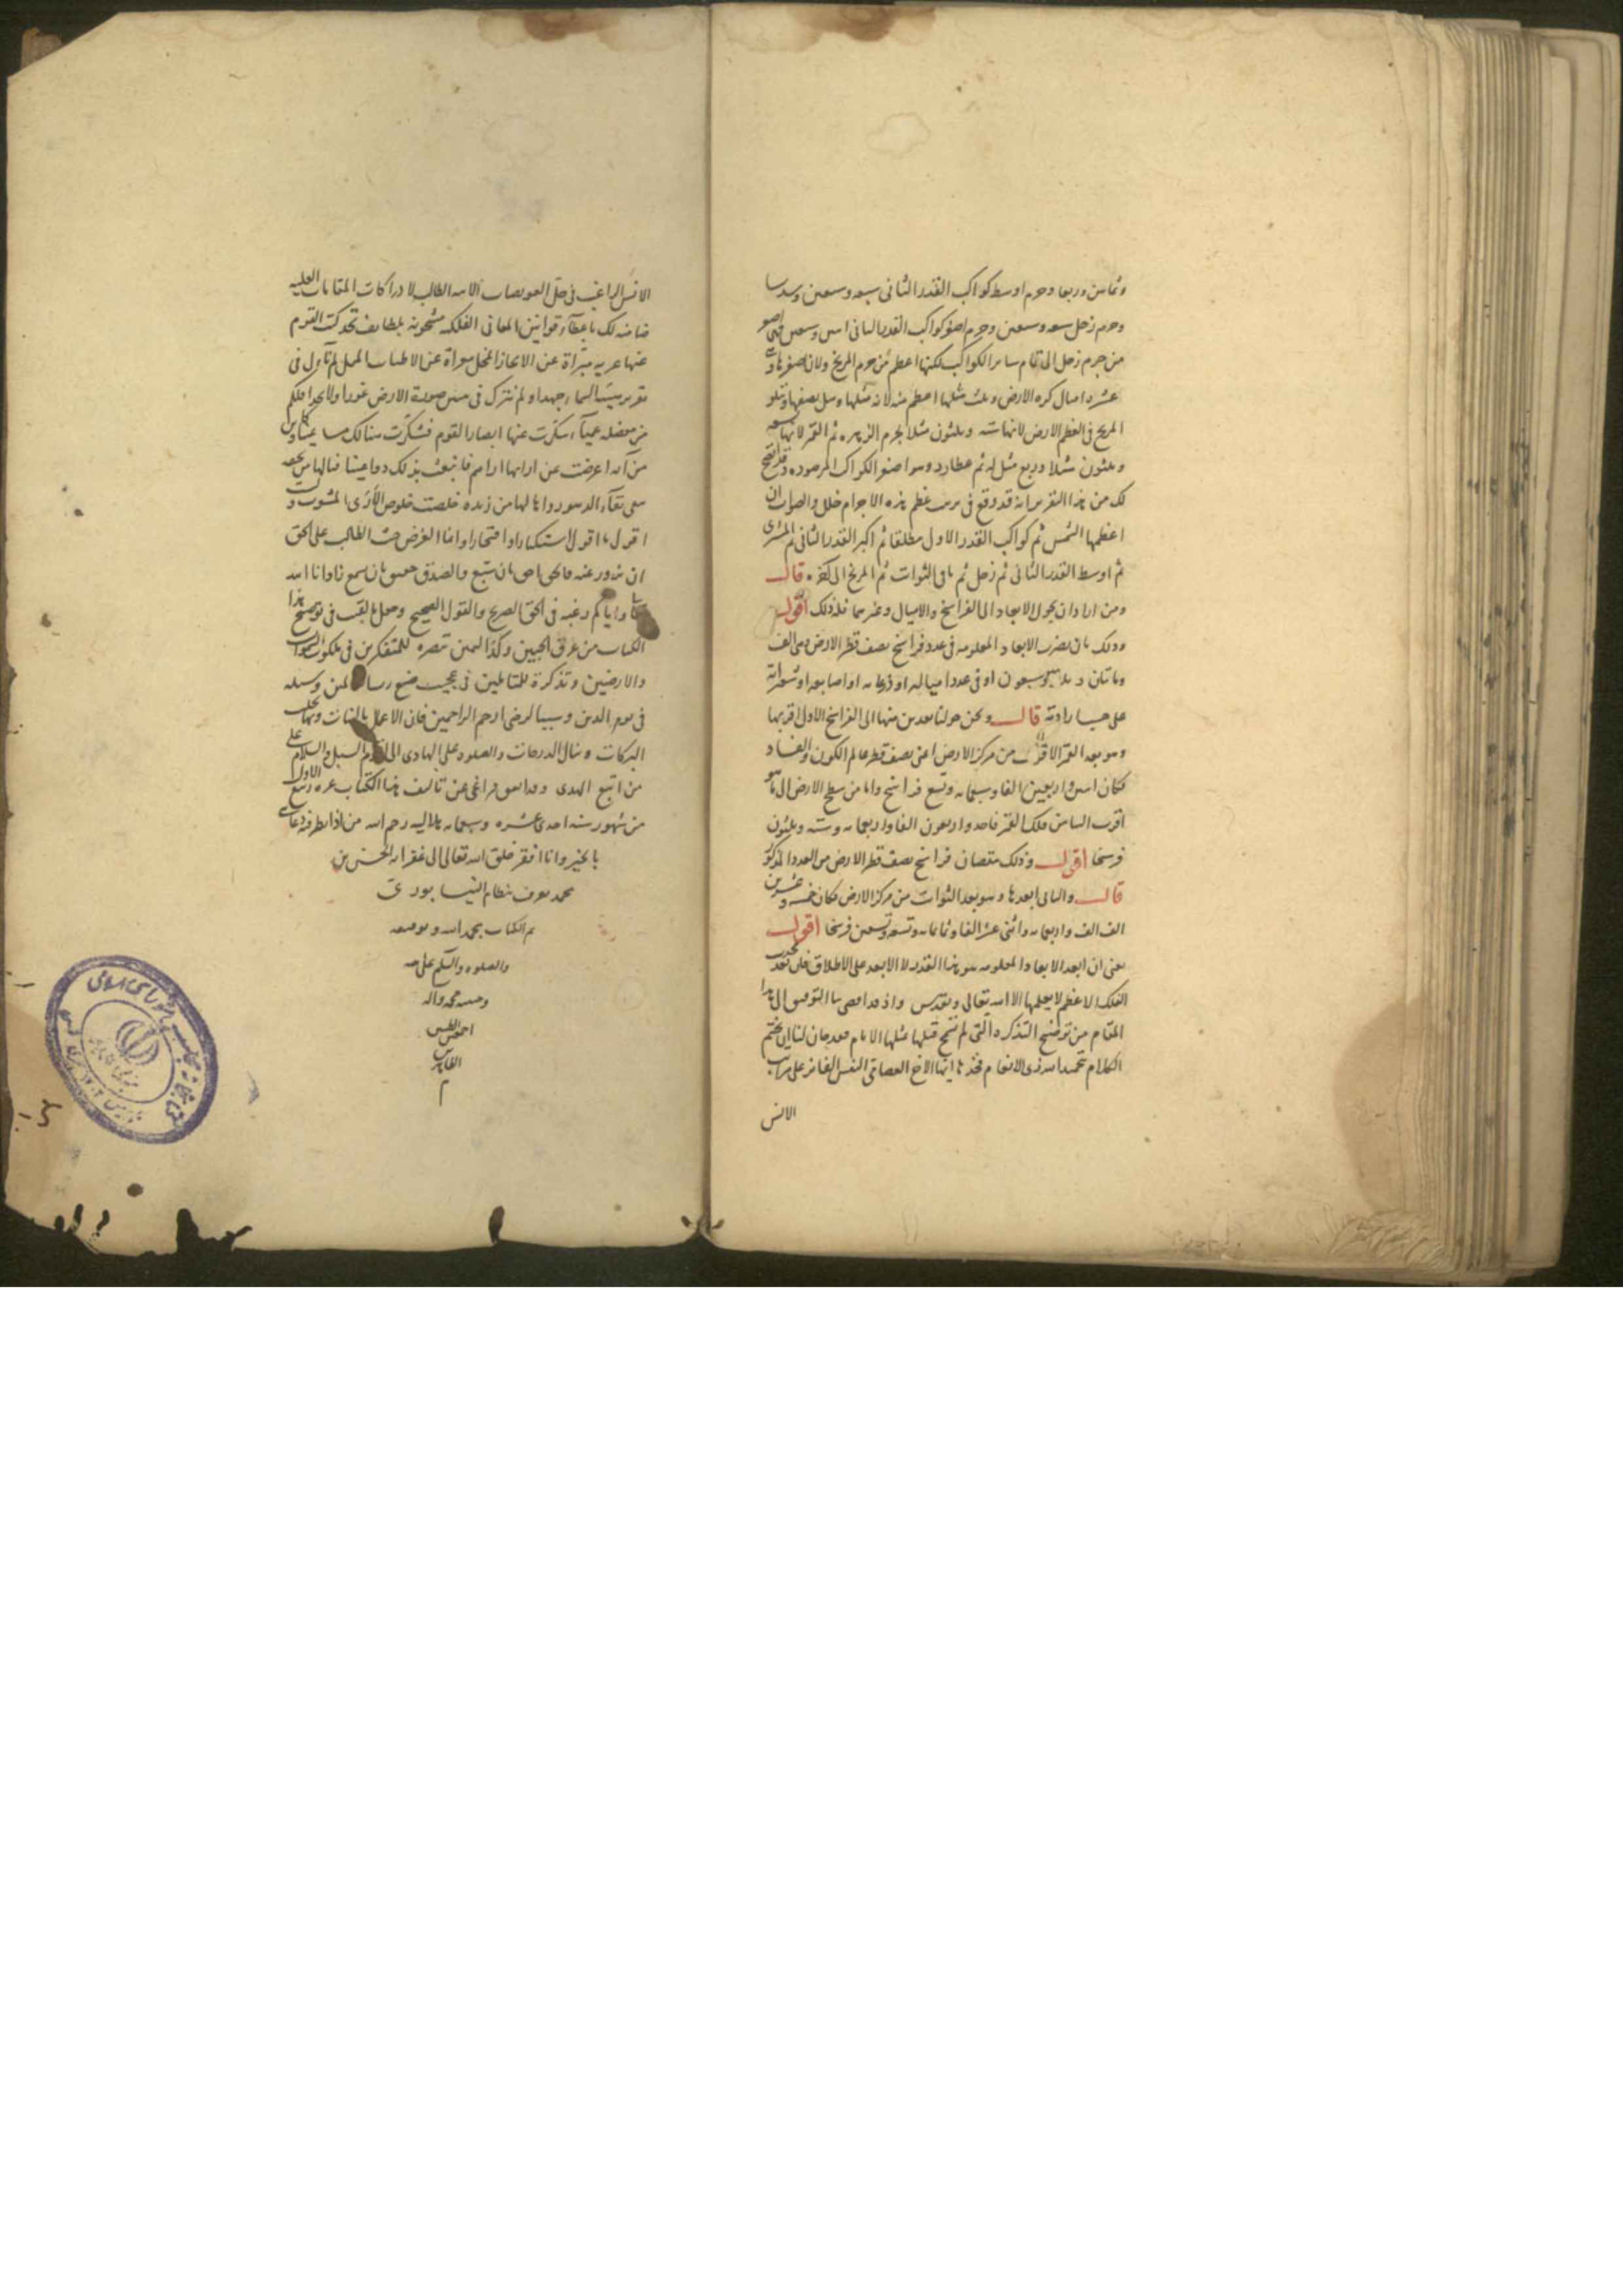 وثمانين وربعا وجرم اوسط كواكب القدر الثانى سبعه وسبعين وسدسا
وجرم زحل سبعه وسبعين وجرم اصغر كواكب القدر الثانى اثنين وسبعين فهى اصغر
من جرم زحل الى تمام سائر الكواكب لكنها اعظم من جرم المريخ ولان اصغرها
عشره امثال كره الارض وثلث مثلها اعظم منه لانه مثلها ومثل نصفها ويتلو
المريخ فى العظم الارض لانها سته وثلثون مثلا لجرم الزهره ثم القمر لانها تسعه
وثلثون مثلا وربع مثل له ثم عطارد وهو اصغر الكواكب المرصوده وقد اتضح
لك من هذا التقرير انه قد وقع فى ترتيب عظم هذه الاجرام خلل والصواب ان
اعظمها الشمس ثم كواكب القدر الاول مطلقا ثم اكبر القدر الثانى ثم المشترى
ثم اوسط القدر الثانى ثم زحل ثم باقى الثوابت ثم المريخ الى اخره قال
ومن اراد ان يحول الابعاد الى الفراسخ والاميال وغيرهما فله ذلك اقول
وذلك بان يضرب الابعاد المعلومه فى عدد فراسخ نصف قطر الارض وهى الف
ومائتان وثلاثه وسبعون او فى عدد امياله او ذرعانه او اصابعه او شعيراته
على حسب ارادته قال ونحن حولنا بعدين منها الى الفراسخ الاول اقربها
وهو بعد القمر الاقرب من مركز الارض اعنى نصف قطر عالم الكون والفساد
فكان اثنين واربعين الفا وسبعمائه وتسع فراسخ واما من سطح الارض الى ما هو
اقرب الينا من فلك القمر فاحد واربعون الفا واربعمائه وسته وثلثون
فرسخا اقول وذلك بنقصان فراسخ نصف قطر الارض من العدد المذكور
قال والثانى ابعدها وهو بعد الثوابت من مركز الارض فكان خمسه وعشرين
الف الف واربعمائه واثنى عشر الفا وثمانمائه وتسعه وتسعين فرسخا اقول
يعنى ان ابعد الابعاد المعلومه هو هذا القدر لا الابعد على الاطلاق فان بعد محدب
الفلك الاعظم لا يعلمها الا الله تعالى وتقدس واذ قد افضى بنا التوفيق الى هذا
المقام من توضيح التذكره التى لم تنتج قبلها مثلها الايام فقد حان لنا ان نختم
الكلام بحمد الله ذى الانعام فخذها ايها الاخ الصافى النفس الفائز على مراتب
الانس
الانس الراغب فى حل العويصات الابيه الطالب لادراكات المقامات العليه
ضامنه لك باعطاء قوانين المعانى الفلكيه مشحونه بلطايف قد كنت القوم
عنها عريه مبراة عن الايجاز المخل معراة عن الاطناب الممل لم آول فى
تقرير هيئة السماء جهدا ولم نترك فى صورة الارض غورا ولا نجدا فلكم
من معضله عمياء سكرت عنها ابصار القوم فشكرت هنالك
من آيه اعرضت عن ارائها اراهم فانبعث بذلك دواعينا فيالها من تحفه
تبقى بقاء الدهور وما لها من زبده خلصت خلوص الأرى المشور ولست
اقول ما اقول استكبارا وافتخارا وانما الغرض حث الطالب على الحق
ان يزور عنه فالحق احق بان يتبع والصدق حقيق بان يسمع زادنا الله
واياكم رغبه فى الحق الصريح والقول الصحيح وجعل ما لقيت فى توضيح هذا
الكتاب من عرق الجبين وكد اليمين تبصره للمتفكرين فى ملكوت السموات
والارضين وتذكرة للمتاملين فى عجيب صنع رب العالمين وسيله
فى يوم الدين وسببا لرضى ارحم الراحمين فان الاعمال بالنيات وبها تجلب
البركات وينال الدرجات والصلوه على الهادى الى اقوم السبل والسلام على
من اتبع الهدى وقد اتفق فراغى عن تاليف هذا الكتاب غره ربيع الاول
من شهور سنه احدى عشره وسبعمائه هلاليه رحم الله من اذا نظر فيه دعا لى
بالخير وانا افقر خلق الله تعالى الى غفرانه الحسن بن
محمد يعرف بنظام النيسابورى
تم الكتاب بحمد الله وتوفيقه
والصلوه والسلم على
محمد واله
اجمعين الطيبين
الطاهرين
م